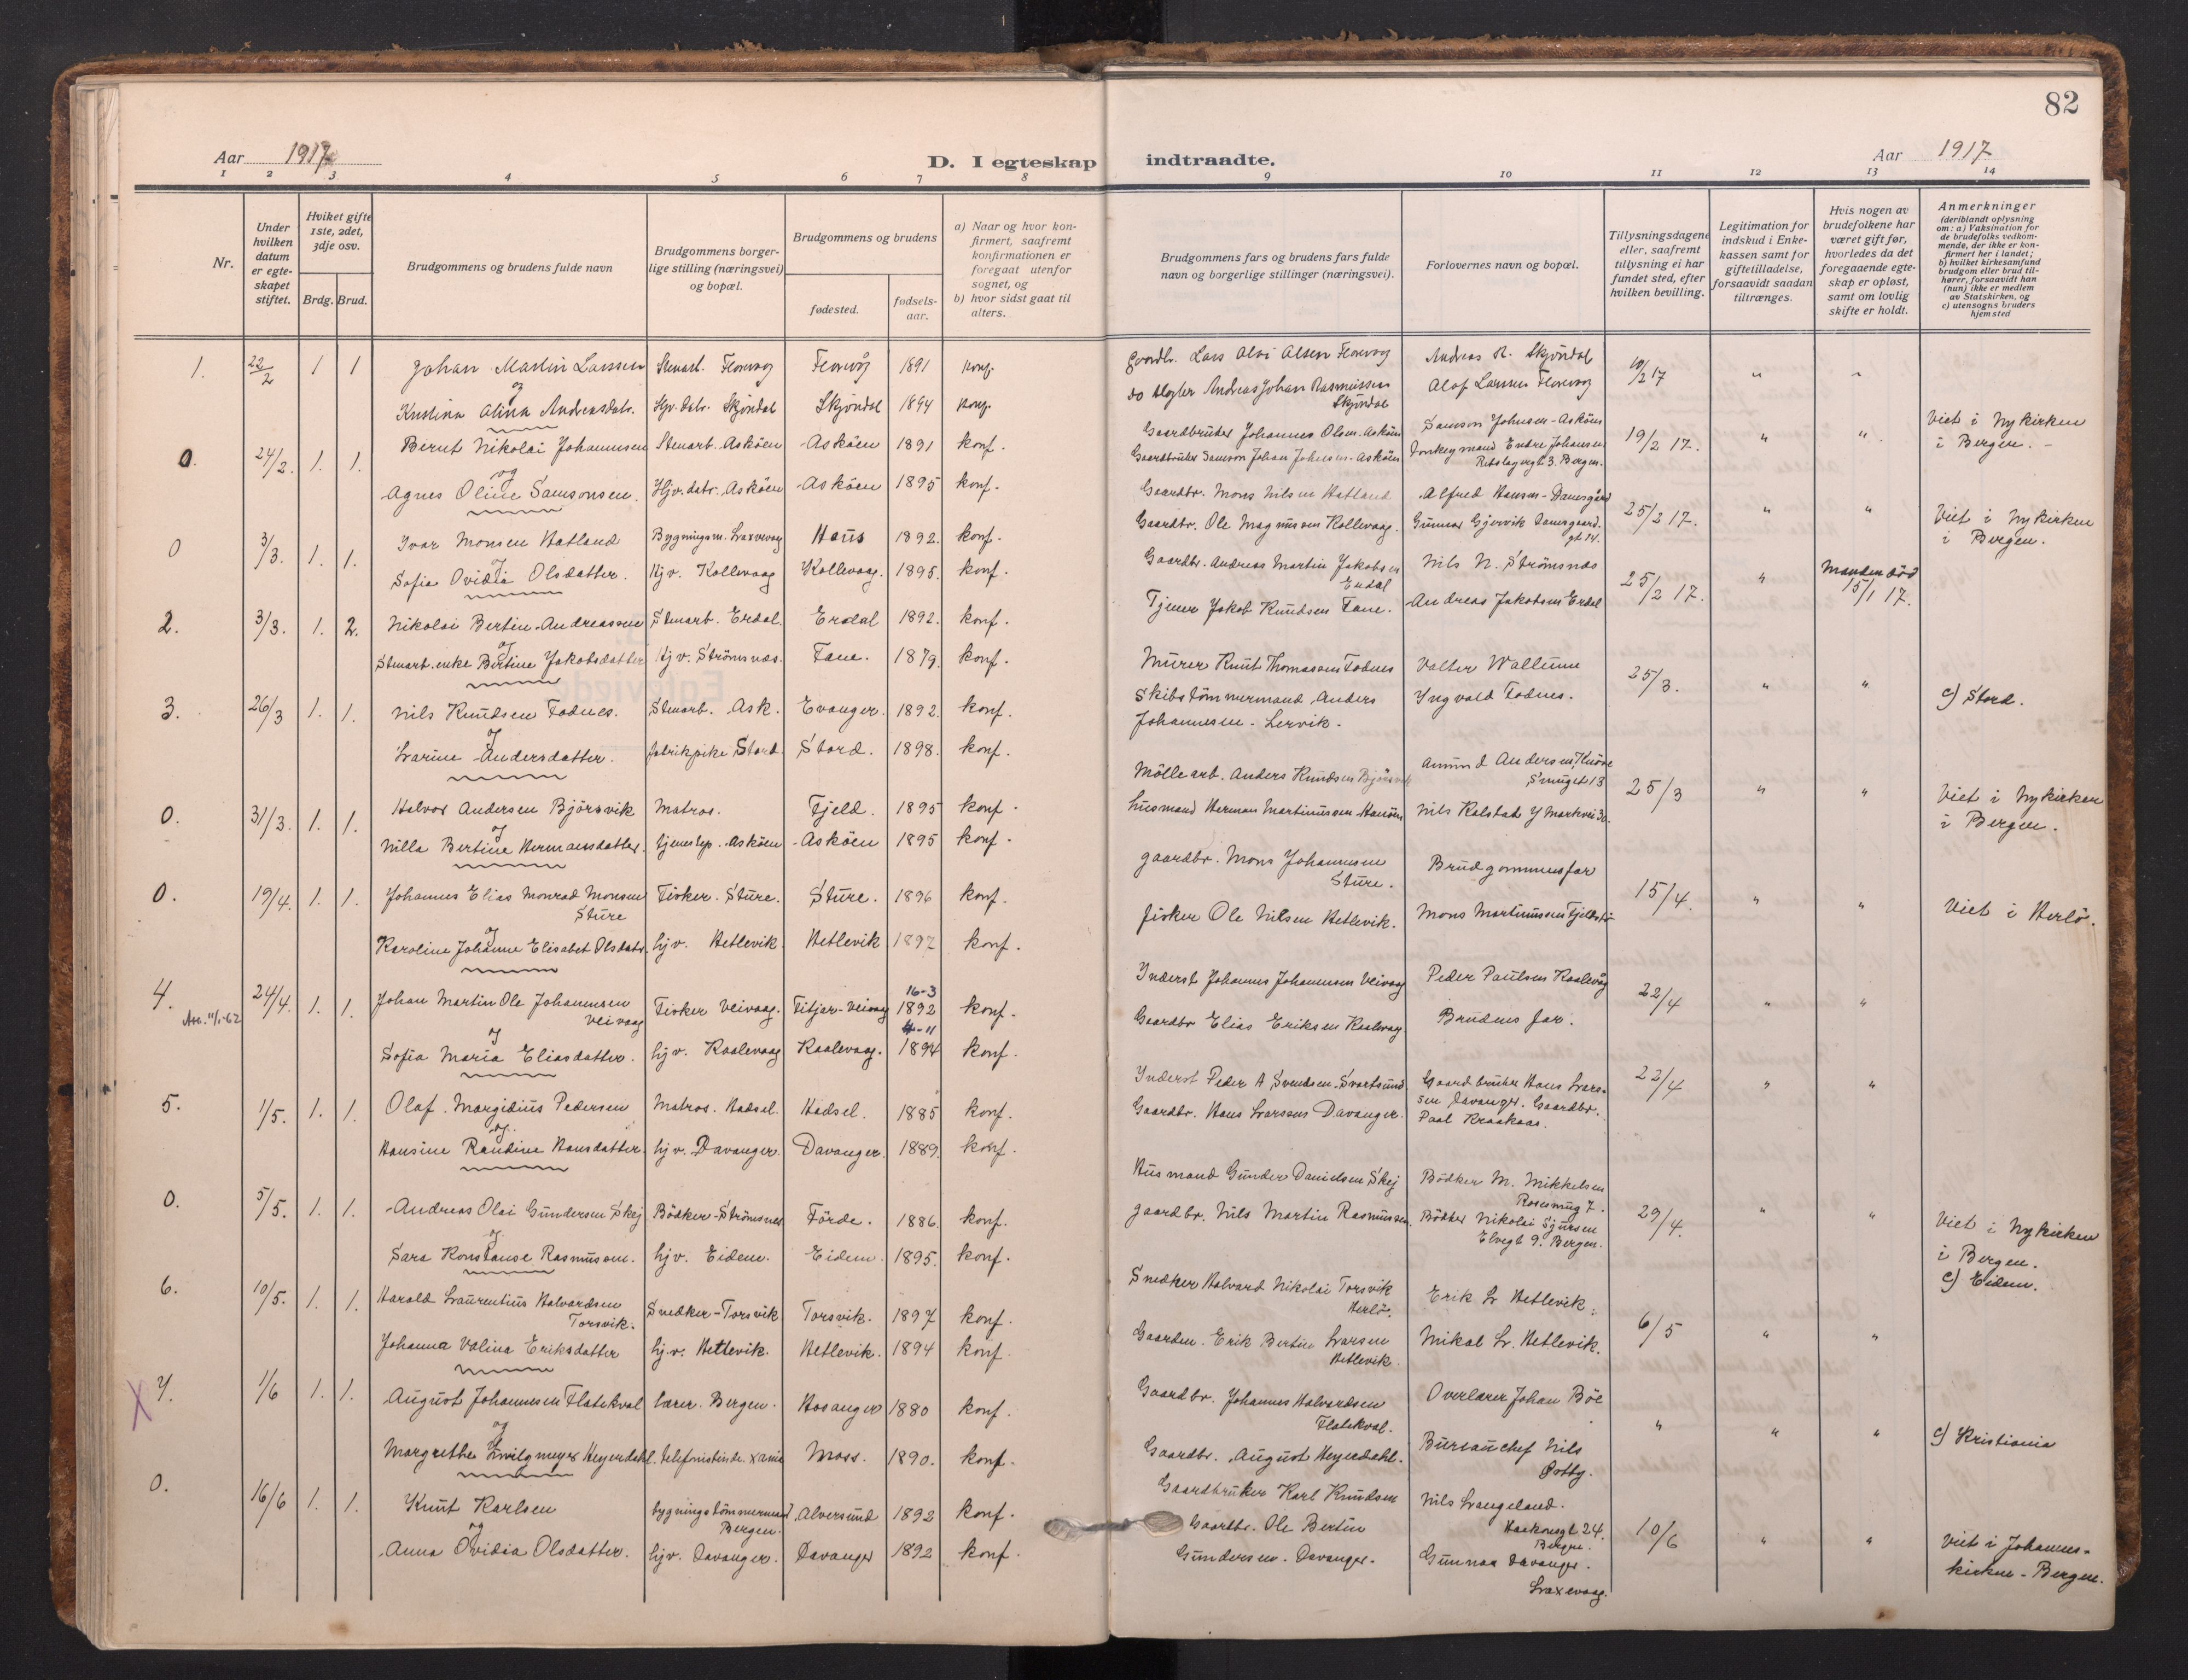 82
Aar 1917
D. I egteskap indtraadte.
Aar 1917
1 2 3 4 5 6 7 8 9 10 11 12 13 14
Nr.
Under hvilken datum er egteskapet stiftet.
Hviket gifte 1ste, 2det, 3dje osv.
Brdg. Brud.
Brudgommens og brudens fulde navn
Brudgommens borgerlige stilling (næringsvei) og bopæl.
Brudgommens og brudens
fødested.
fødselsaar.
a) Naar og hvor konfirmert, saafremt konfirmationen er foregaat utenfor sognet, og
b) hvor sidst gaat til alters.
Brudgommens fars og brudens fars fulde navn og borgerlige stillinger (næringsvei).
Forlovernes navn og bopæl.
Tillysningsdagene eller, saafremt tillysning ei har fundet sted, efter hvilken bevilling.
Legitimation for indskud i Enkekassen samt for giftetilladelse, forsaavidt saadan tiltrænges.
Hvis nogen av brudefolkene har været gift før, hvorledes da det foregaaende egteskap er opløst, samt om lovlig skifte er holdt.
Anmerkninger
(deriblandt oplysning om: a) Vaksination for de brudefolks vedkommende, der ikke er konfirmert her i landet; b) hvilket kirkesamfund brudgom eller brud tilhører, forsaavidt han (hun) ikke er medlem av Statskirken, og c) utensogns bruders hjemsted
1. 22/2 1 1 Johan Martin Larssen Stenarb. Florvaag Florvåg 1891 konf.
og
Kristina Alina Andreasdatr. Hjv. datr. Skjöndal Skjöndal 1894 konf.
Gaardbr. Lars Olai Olsen Florvaag Andreas R. Skjöndal 18/2 17 " "
do Andreas Johan Rasmussen Skjöndal Olaf Larssen Florvaag
0. 24/2. 1. 1. Bernt Nikolai Johannesen Stenarb. Asköen Asköen 1891 konf.
og
Agnes Oline Samsonsen. Hjv. datr. Asköen Asköen 1895 konf.
Gaardbruker Johannes Olsen. Asköen Samson Johnsen - Asköen 19/2 17. " " Viet i Nykirken i Bergen. -
Gaardbruker Samson Johan Johnsen. Asköen Donkeymand Endre Johansen Rebslagergt 3. Bergen.
0 3/3. 1. 1. Ivar Monsen Hatland Bygningsm. Laxevaag Haus 1892. konf.
og
Sofia Ovidia Olsdatter. Hjv. Kollevaag Kollevaag. 1895. konf.
Gaardbr. Mons Nilsen Hatland Alfred Hansen - Damsgård 25/2 17. " " Viet i Nykirken i Bergen.
Gaardbr. Ole Magnussen Kollevaag. Gunnar Gjervik Damsgaard. gt. 14.
2. 3/3. 1. 2. Nikolai Bertin Andreassen Stenarb. Erdal. Erdal 1892. konf.
og
Stenarb. enke Bertine Jakobsdatter Hjv. Strömsnes. Fane. 1879. konf.
Gaardbr. Andreas Martin Jakobsen Erdal Nils N. Strömsnes 25/2 17. " Manden död 15/1 17.
Tjener Jakob Knudsen Fane. Andreas Jakobsen Erdal
3. 26/3 1. 1. Nils Knudsen Fodnes. Stenarb. Ask. Evanger. 1892. konf.
og
Larine Andersdatter. fabrikpike Stord Stord. 1898. konf.
Murer Knut Thomassen Fodnes Valter Wallum 25/3. " " c) Stord.
Skibstömmermand Anders Johannesen - Lervik. Yngvald Fodnes.
0. 31/3. 1. 1. Halvor Andersen Björsvik Matros. Fjeld. 1895 konf.
og
Nilla Bertine Hermansdatter. tjenestep. Asköen Asköen 1895 konf.
Möllearb. Anders Knudsen Björsvik Amund Andersen, Knöse Smuget 13 25/3 " " Viet i Nykirken i Bergen.
Husmand Herman Martinussen Hanöen Nils Kolstad Y Markvei 30.
0. 19/4. 1. 1. Johannes Elias Monrad Monsen Sture Fisker. Sture. Sture. 1896 konf.
og
Karoline Johanne Elisabet Olsdatr. hjv. Hetlevik. Hetlevik 1897 konf.
gaardbr. Mons Johannesen Sture. Brudgommens far 15/4. " " Viet i Herlö.
fisker Ole Nilsen Hetlevik. Mons Martinussen
4. 24/4. 1. 1. Johan Martin Ole Johannesen Veivaag Fisker Veivaag. Fitjar-Veivaag 16-3 1892 konf.
11/1-62
og
Sofia Maria Eliasdatter. hjv. Kaalevaag Kaalevaag. 4-11 1894 konf.
Inderst Johannes Johannesen Veivaag Peder Paulsen Kaalevåg 22/4 " "
Gaardbr Elias Eriksen Kaalevaag Brudens far.
5. 1/5. 1. 1. Olaf Margidius Pedersen Matros. Hadsel. Hadsel. 1885 konf.
og.
Hansine Randine Hansdatter. hjv. Davanger. Davanger. 1889. konf.
Inderst Peder A Svendsen. Svartsund Gaardbruker Hans Larssen Davanger. Gaardbr. Paal Kraakaas. 22/4 " "
Gaardbr. Hans Larssen Davanger.
0. 5/5. 1. 1. Andreas Olai Gundersen Skej Bödker - Strömsnes Förde. 1886. konf.
og
Sara Konstanse Rasmussen. hjv. Eidem. Eidem. 1895. konf.
Husmand Gunder Danielsen Skej Bödker M. Mikkelsen Rosesmug 7. 29/4. " " Viet i Nykirken i Bergen. c) Eidem.
gaardbr. Nils Martin Rasmussen. Bödker Nikolai Sjursen Elvegt 9. Bergen.
6. 10/5. 1. 1. Harald Laurentius Halvardsen Torsvik. Snedker - Torsvik Torsvik. 1897 konf.
Johanna Valina Eriksdatter hjv. Hetlevik. Hetlevik. 1894 konf
Snedker Halvard Nikolai Torsvik Herlö. Erik L Hetlevik. 6/5 " "
Gaardm. Erik Bertin Larsen Hetlevik. Mikal L. Hetlevik.
X 7. 1/6 1. 1. August Johannesen Flatekval lærer. Bergen. Hosanger 1880 konf.
og
Margrethe Zwilgmeyer Heyerdahl. telefonistinde. Xania Moss. 1890. konf.
Gaardbr. Johannes Halvardsen Flatekval. Overlærer Johan Böe " " " c) Kristiania
Gaardbr. August Heyerdahl. Bureauchef Nils Ostby.
0. 16/6 1. 1. Knut Karlsen bygningstömmermand Bergen. Alversund 1892 konf.
og
Anna Ovidia Olsdatter. hjv. Davanger. Davanger 1892 konf.
Gaardbruker Karl Knudsen Nils Langeland. Haakonsgt 24. Bergen. 10/6 " " Viet i Johanneskirken - Bergen.
Gaardbr. Ole Bertin Gundersen. Davanger. Gunnar Davanger. Laxevaag.